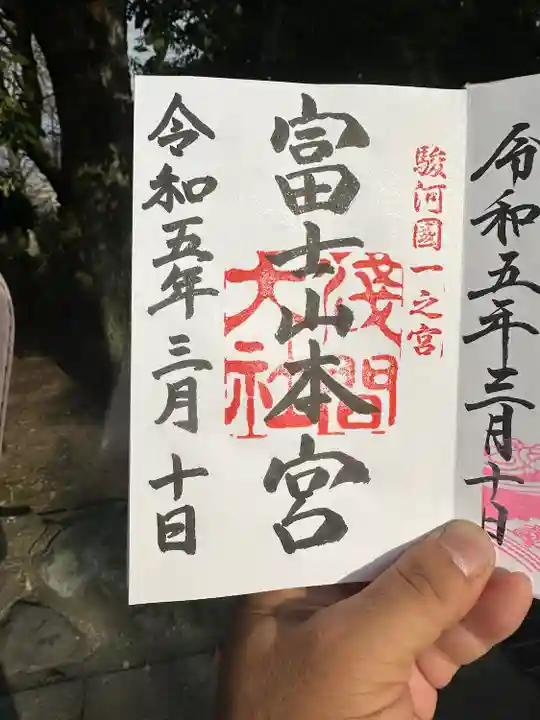 令和五年三月十日
駿河國一之宮
富士山本宮
淺間大社
令和五年三月十日